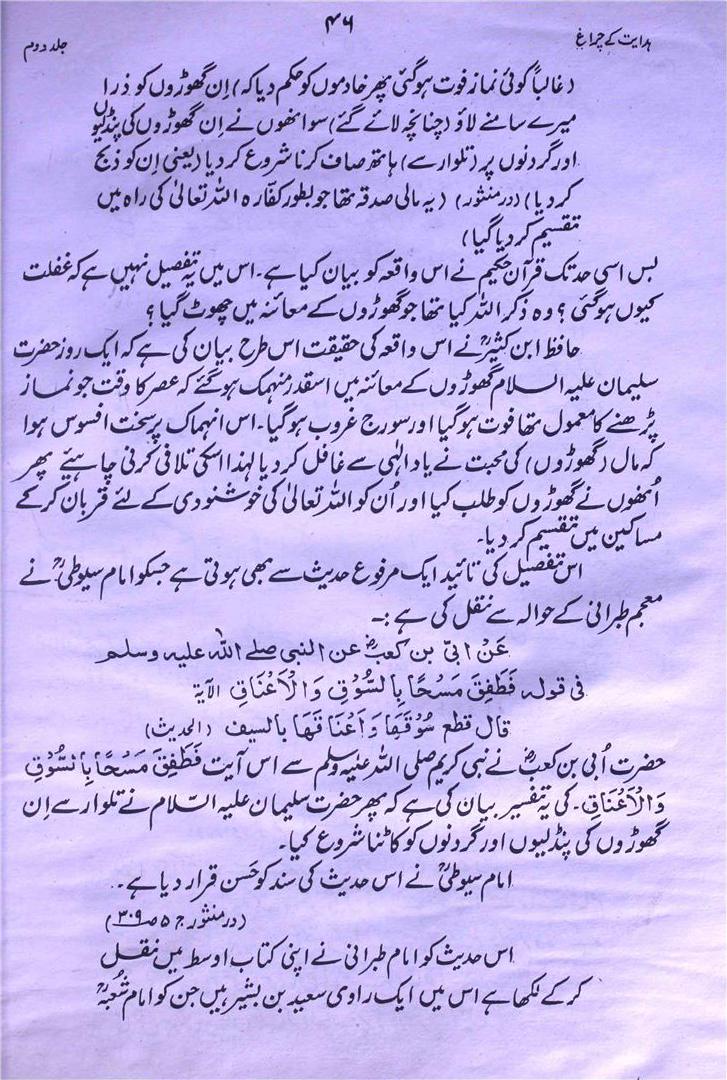 ہدایت کے چراغ
۴۶
جلد دوم
(غالباً کوئی نماز فوت ہوگئی پھر خادموں کو حکم دیا کہ) اِن گھوڑوں کو ذرا
میرے سامنے لاؤ (چنانچہ لائے گئے) سو انھوں نے اِن گھوڑوں کی پنڈلیوں
اور گردنوں پر (تلوار سے) ہاتھ صاف کرنا شروع کر دیا (یعنی اِن کو ذبح
کر دیا) (درمنثور) (یہ مالی صدقہ تھا جو بطور کفّارہ اللہ تعالیٰ کی راہ میں
تقسیم کر دیا گیا)
بس اسی حد تک قرآن حکیم نے اس واقعہ کو بیان کیا ہے۔ اس میں یہ تفصیل نہیں ہے کہ غفلت
کیوں ہوگئی؟ وہ ذکر اللہ کیا تھا جو گھوڑوں کے معائنہ میں چھوٹ گیا؟
حافظ ابن کثیرؒ نے اس واقعہ کی حقیقت اس طرح بیان کی ہے کہ ایک روز حضرت
سلیمان علیہ السلام گھوڑوں کے معائنہ میں اسقدر منہمک ہوگئے کہ عصر کا وقت جو نماز
پڑھنے کا معمول تھا فوت ہوگیا اور سورج غروب ہوگیا۔ اس انہماک پر سخت افسوس ہوا
کہ مال (گھوڑوں) کی محبت نے یاد الٰہی سے غافل کر دیا لہٰذا اسکی تلافی کرنی چاہیئے پھر
اُنھوں نے گھوڑوں کو طلب کیا اور اُن کو اللہ تعالیٰ کی خوشنودی کے لئے قربان کر کے
مساکین میں تقسیم کر دیا۔
اس تفصیل کی تائید ایک مرفوع حدیث سے بھی ہوتی ہے جسکو امام سیوطیؒ نے
معجم طبرانی کے حوالہ سے نقل کی ہے :۔
عَنْ ابیّ بن کعبؓ عن النبی صلے اللہ علیہ وسلم
فی قولہ فَطَفِقَ مَسْحًا بِالسُّوْقِ وَالْاَعْنَاقِ الآیۃ
قال قطع سُوْقَهَا وَاَعْنَاقَهَا بالسیف (الحدیث)
حضرت اُبی بن کعبؓ نے نبی کریم صلی اللہ علیہ وسلم سے اس آیت فَطَفِقَ مَسْحًا بِالسُّوْقِ
وَالْاَعْنَاقِ۔ کی یہ تفسیر بیان کی ہے کہ پھر حضرت سلیمان علیہ السّلام نے تلوار سے اِن
گھوڑوں کی پنڈلیوں اور گردنوں کو کاٹنا شروع کیا۔
امام سیوطیؒ نے اس حدیث کی سند کو حَسن قرار دیا ہے۔
(درمنثور ج ۵ ص ۳۰۹)
اس حدیث کو امام طبرانی نے اپنی کتاب اوسط میں نقل
کر کے لکھا ہے اس میں ایک راوی سعید بن بشیر ہیں جن کو امام شُعبہؒ